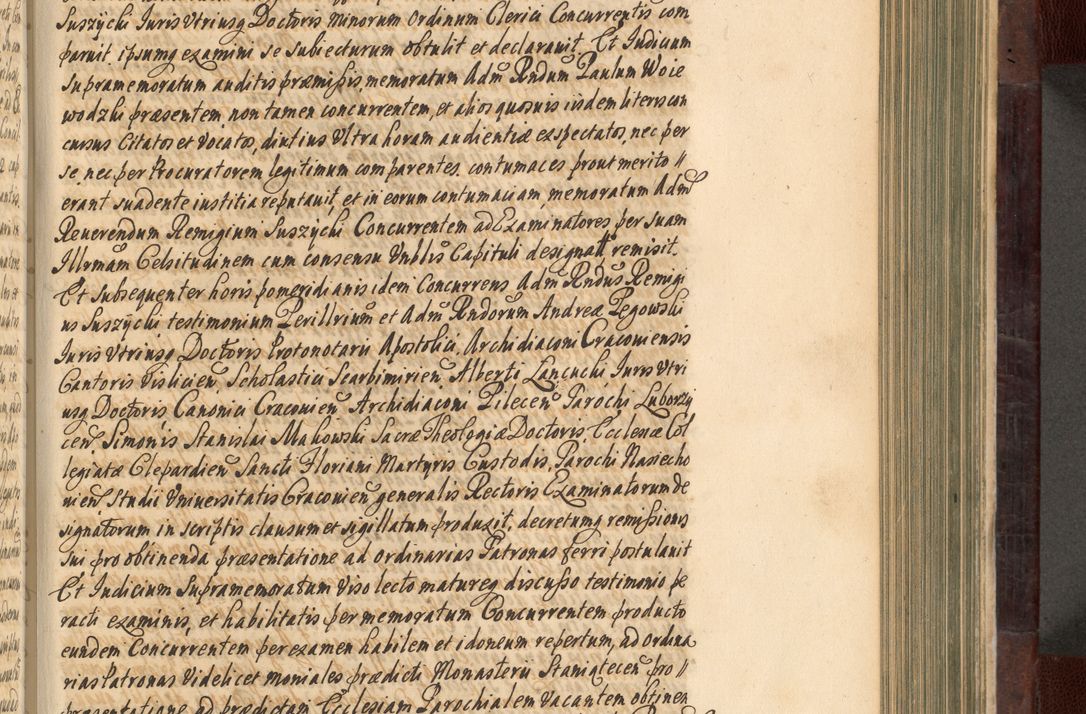 Suszycki Iuris Vtriusq Doctoris Minorum Ordinum Clerici Concurrentis com
paruit, ipsumq examini se subiecturum obtulit et declarauit. Et Iudicium
supramemoratum auditis præmissis, memoratum Adm Rndum Paulum Woie
wodzki præsentem non tamen concurrentem, et alios quosuis iisdem literis con
cursus Citatos et Vocatos, diutius Vltra horam audientiæ exspectatos, nec per
se, nec per Procuratorem legitimum comparentes, contumaces prout merito //
erant suadente iustitia reputauit, et in eorum contumaciam, memoratum Adm
Reuerendum Remigium Suszycki Concurrentem ad Examinatores per suam
Illrmam Celsitudinem cum consensu Vnblis Capituli designatt remisit.
Et subsequenter horis pomeridianis idem Concurrens Adm Rndus Remigi
us Suszycki testimonium Perillrium et Adm Rndorum Andreæ Pegowski
Iuris Vtriusq Doctoris Protonotarii Apostolici, Archidiaconi Cracouiensis
Cantoris Vislicien Scholastici Scarbimirien, Alberti Lancucki Iuris Vtri
usq Doctoris, Canonici Cracouien Archidiaconi Pilecen Parochi Luborzy
cen, Simonis Stanislai Makowski Sacræ Theologiæ Doctoris, Ecclesiæ Col
legiatæ Clepardien Sancti Floriani Martyris Custodis, Parochi Nasiecho
uien, Studii Vniuersitatis Cracouien generalis Rectoris Examinatorum de
signatorum in scriptis clausum et sigillatum produxit, decretumq remissionis
sui pro obtinenda præsentatione ad ordinarias Patronas ferri postulauit
Et Iudicium supramemoratum Viso lecto matureq discusso testimonio pe
racti examinis, et habilitatis per memoratum Concurrentem producto
eundem Concurrentem per examen habilem et idoneum repertum, ad ordina
rias Patronas Videlicet moniales prædicti Monasterii Staniatecen pro //
præsentatione ad prædictam Ecclesiam Parochialem Vacantem obtinen